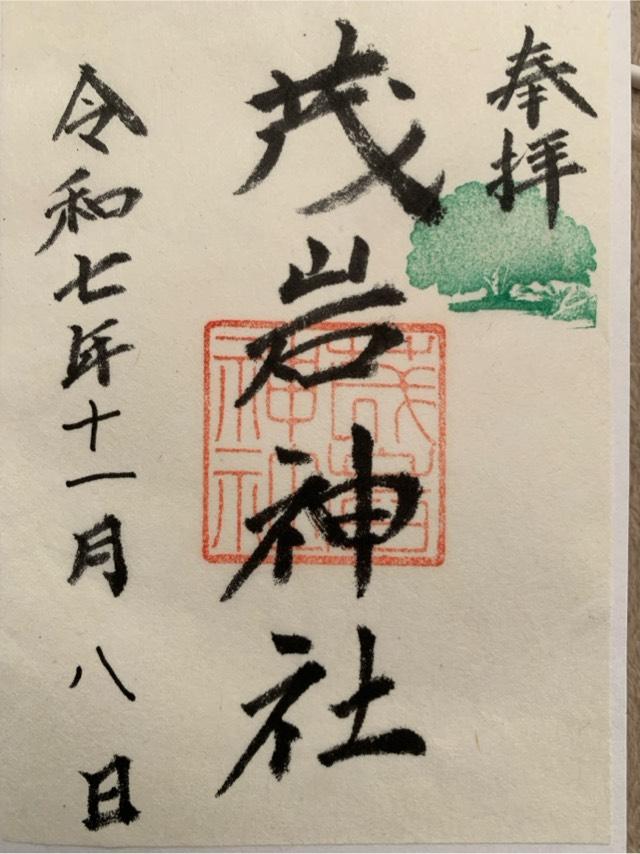 奉拝
茂岩神社
茂岩神社
令和七年十一月八日